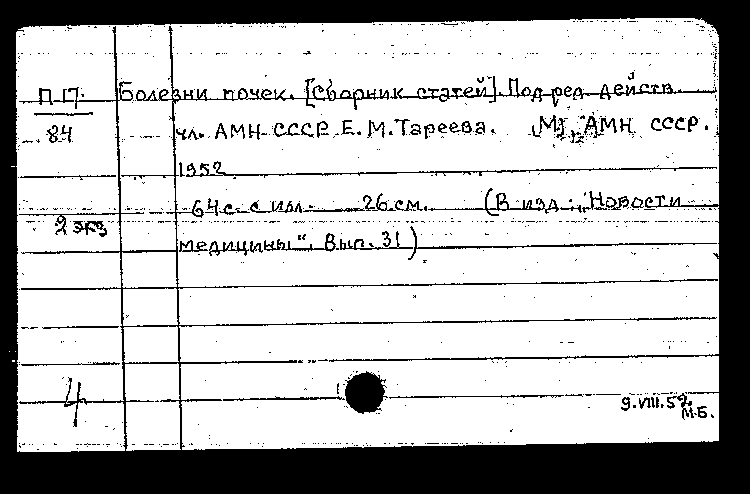 П.П.
84
Болезни почек. [Сборник статей]. Под ред. действ.
чл. АМН СССР Е. М. Тареева. М., АМН СССР.
1952
64 с. с илл. 26 см. (В изд.: „Новости
медицины“, Вып. 31)
2 экз
4
9.VIII.52.
М.Б.